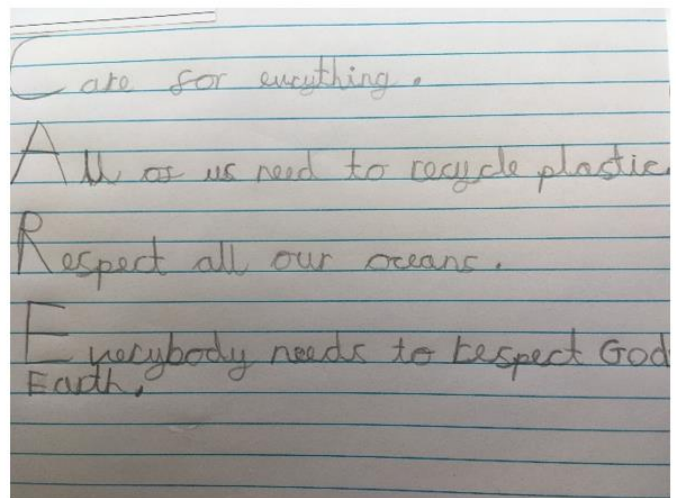 Care for everything.
All of us need to recycle plastic.
Respect all our oceans.
Everybody needs to respect God
Earth.